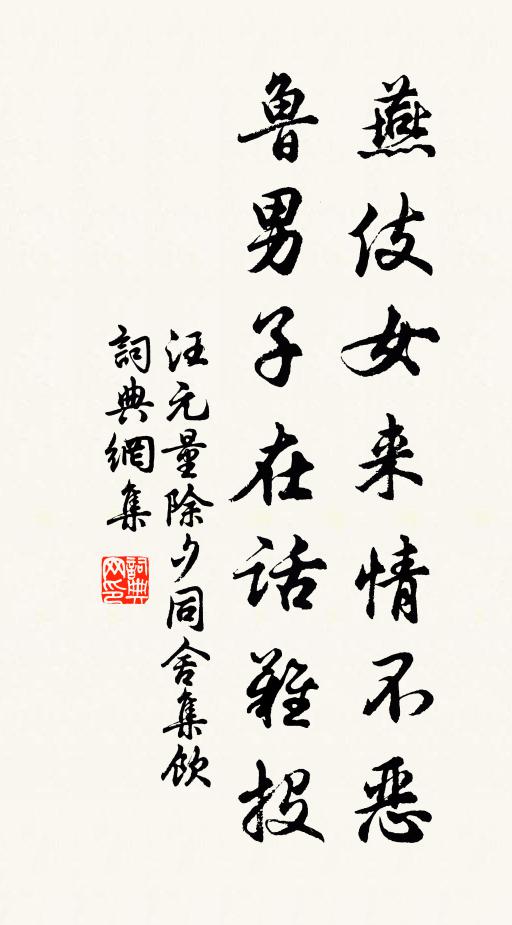 燕伎女来情不恶
鲁男子在话难投
汪元量除夕同舍集饮
詞典網集
詞典网印